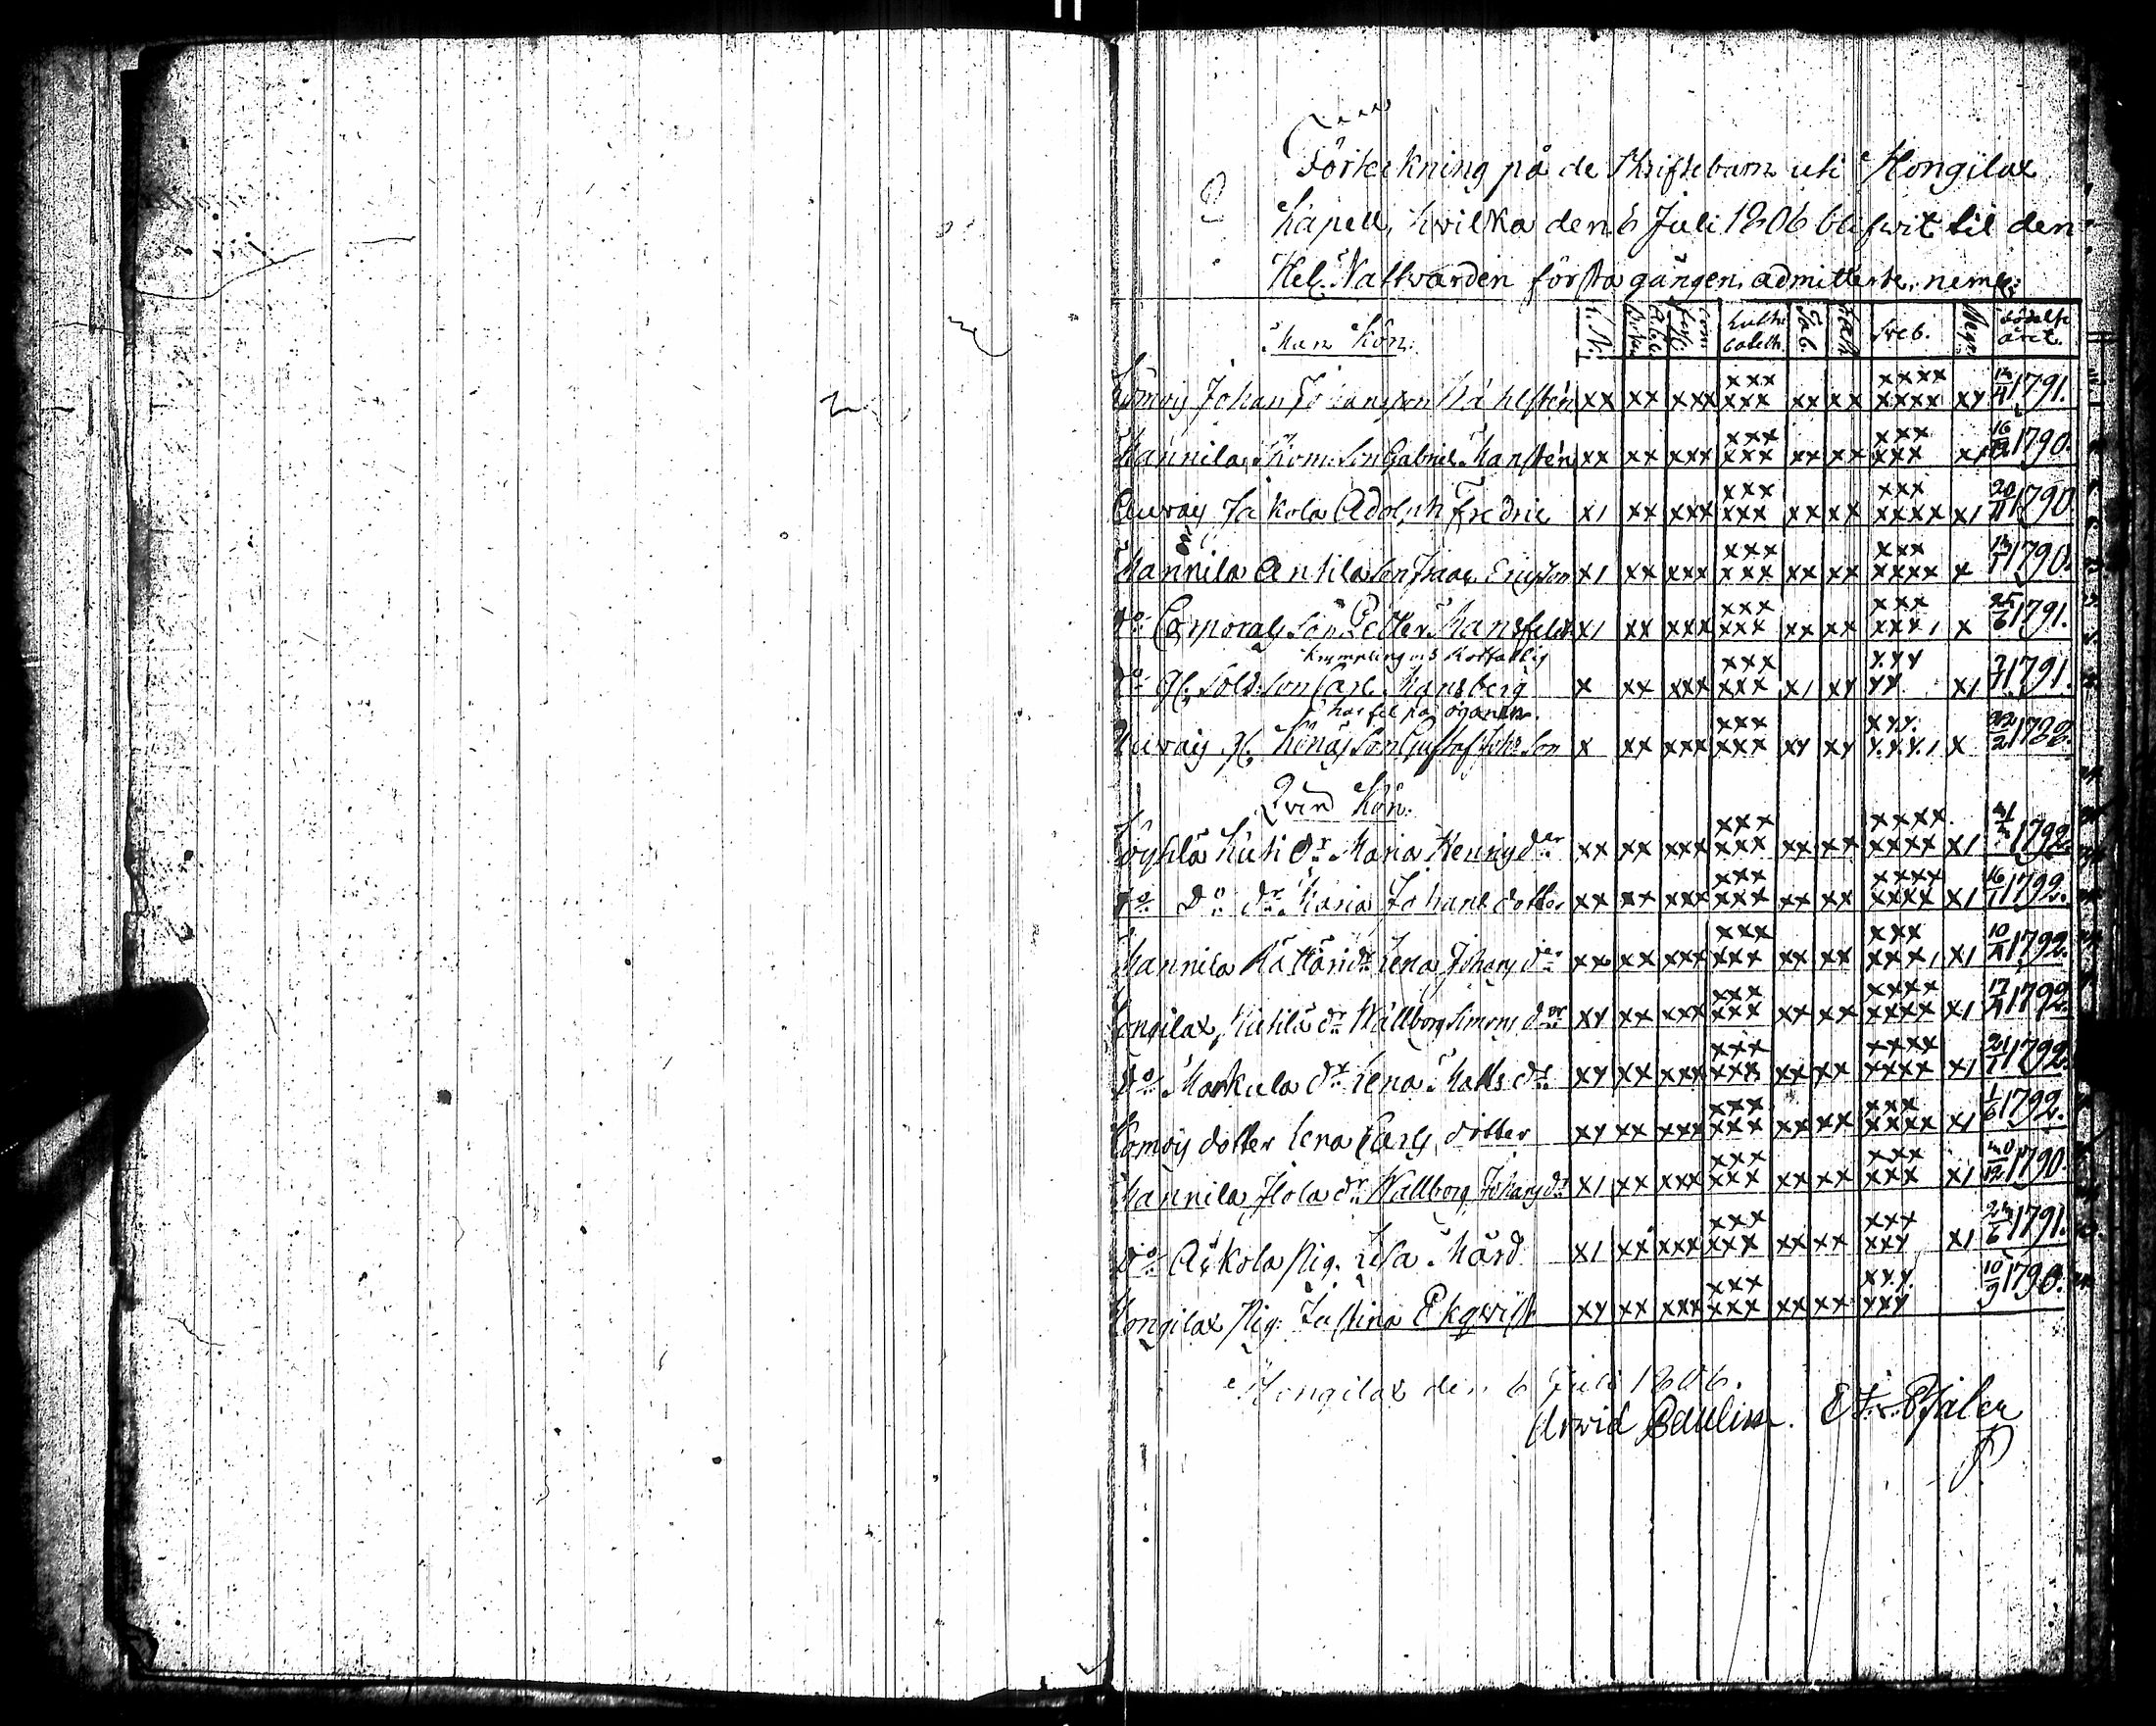 Förteckning på de Skriftebarn uti Kongilax
Kapell, hvilka den 6 Juli 1806 blifwit til den
Hel. Nattvarden första gången admitterte, neml:
Man Kön. Luthi cateth. Tab. Sreb. födelse året.
Johan Johansson Ståhlsten xx xx xxx xxx xxx xx xx xxxx xxxx xx 1791.
Mannila, Gabriel Mansten xx xx xxx xxx xxx xx xx xxx xxx x1 16/12 1790.
Auvais Jakola Adolph Fredric x1 xx xxx xxx xxx xx xx xxx xxxx x1 20/11 1790
Mannila Antila son Isaac Ericsson x1 xx xxx xxx xxx xx xx xxx xxxx x 1790.
Do Corporals son Petter Mansfelt x1 xx xxx xxx xxx xx xx xxx xxx1 x 25/6 1791.
krumpling och
Do gl. Sold: son Carl Mansberg x xx xxx xxx xxx x1 xx xxx xx x1 1791.
har fel på ögonen.
Auvais gl. son Gustaf Joh: Son x xx xxx xxx xxx xx xx xxx xxx1 x 22/2 1788.
Qvin Kön.
Töysilä Kuti dr Maria Henrics dr xx xx xxx xxx xxx xx xx xxxx xxxx x1 1792.
Do Do dr Maria Johans dotter xx xx xxx xxx xxx xx xx xxxx xxxx x1 16/1 1792.
Mannila dr Lena Johans dr xx xx xxx xxx xxx xx xx xxx xxx1 x1 1792.
Kongilax, dr Wallborg Simons dr xx xx xxx xxx xxx xx xx xxxx xxxx x1 1792.
Do Markula dr Lena Matts dr xx xx xxx xxx xxx xx xx xxxx xxxx x1 21/1 1792.
dotter Lena Carls dotter xx xx xxx xxx xxx xx xx xxx xxxx x1 1/6 1792.
Mannila Isola dr Wallborg Johans dr x1 xx xxx xxx xxx xx xx xxx xxx x1 30/12 1790.
Do Pig. Lisa Mård x1 xx xxx xxx xxx xx xx xxx xxx x1 23/6 1791.
Kongilax Pig. Justina Ekqwist xx xx xxx xxx xxx xx xx xxx xxx 10/9 1790.
Kongilax den 6 Juli 1806.
Arvid Paulin.